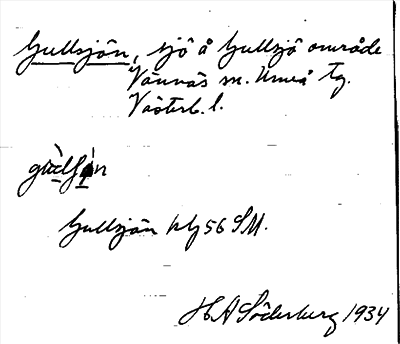 Gullsjön, sjö å Gullsjö område
Vännäs sn. Umeå tg.
Västerb. l.
Gullsjön blj 56 SM.
H A Söderberg 1934